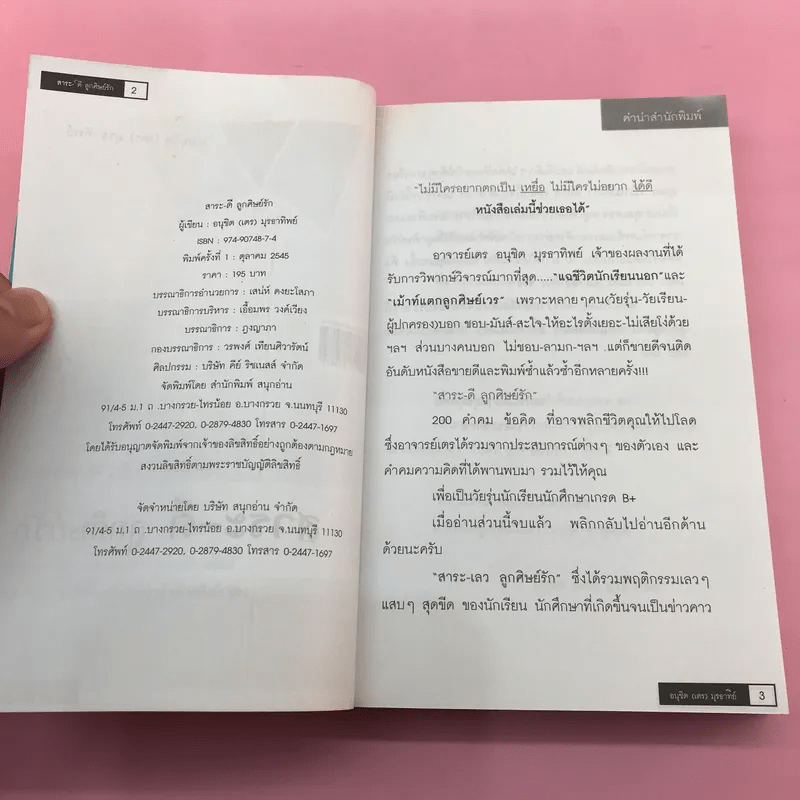 สาระ-ดี ลูกศิษย์รัก 2
สาระ-ดี ลูกศิษย์รัก
ผู้เขียน : อนุชิต (เตร) มุรธาทิพย์
ISBN : 974-90748-7-4
พิมพ์ครั้งที่ 1 : ตุลาคม 2545
ราคา : 195 บาท
บรรณาธิการอำนวยการ : เสน่ห์ ดงยะโสภา
บรรณาธิการบริหาร : เอื้อมพร วงค์เวียง
บรรณาธิการ : ฎงญาภา
กองบรรณาธิการ : วรพงศ์ เทียนศิวารัตน์
ศิลปกรรม : บริษัท คีย์ ริชเนสส์ จำกัด
จัดพิมพ์โดย สำนักพิมพ์ สนุกอ่าน
91/4-5 ม.1 ถ .บางกรวย-ไทรน้อย อ.บางกรวย จ.นนทบุรี 11130
โทรศัพท์ 0-2447-2920, 0-2879-4830 โทรสาร 0-2447-1697
โดยได้รับอนุญาตจัดพิมพ์จากเจ้าของลิขสิทธิ์อย่างถูกต้องตามกฎหมาย
สงวนลิขสิทธิ์ตามพระราชบัญญัติลิขสิทธิ์
จัดจำหน่ายโดย บริษัท สนุกอ่าน จำกัด
91/4-5 ม.1 ถ .บางกรวย-ไทรน้อย อ.บางกรวย จ.นนทบุรี 11130
โทรศัพท์ 0-2447-2920, 0-2879-4830 โทรสาร 0-2447-1697
คำนำสำนักพิมพ์
"ไม่มีใครอยากตกเป็น เหยื่อ ไม่มีใครไม่อยาก ได้ดี
หนังสือเล่มนี้ช่วยเธอได้"
อาจารย์เตร อนุชิต มุรธาทิพย์ เจ้าของผลงานที่ได้
รับการวิพากษ์วิจารณ์มากที่สุด....."แฉชีวิตนักเรียนนอก"และ
"เม้าท์แตกลูกศิษย์เวร" เพราะหลายๆคน(วัยรุ่น-วัยเรียน-
ผู้ปกครอง)บอก ชอบ-มันส์-สะใจ-ให้อะไรตั้งเยอะ-ไม่เสียโง่ด้วย
ฯลฯ ส่วนบางคนบอก ไม่ชอบ-ลามก-ฯลฯ .แต่ก็ขายดีจนติด
อันดับหนังสือขายดีและพิมพ์ซ้ำแล้วซ้ำอีกหลายครั้ง!!!
"สาระ-ดี ลูกศิษย์รัก"
200 คำคม ข้อคิด ที่อาจพลิกชีวิตคุณให้ไปโลด
ซึ่งอาจารย์เตรได้รวมจากประสบการณ์ต่างๆ ของตัวเอง และ
คำคมความคิดที่ได้พานพบมา รวมไว้ให้คุณ
เพื่อเป็นวัยรุ่นนักเรียนนักศึกษาเกรด B+
เมื่ออ่านส่วนนี้จบแล้ว พลิกกลับไปอ่านอีกด้าน
ด้วยนะครับ
"สาระ-เลว ลูกศิษย์รัก" ซึ่งได้รวมพฤติกรรมเลวๆ
แสบๆ สุดขีด ของนักเรียน นักศึกษาที่เกิดขึ้นจนเป็นข่าวคาว
อนุชิต (เตร) มุรธาทิพย์ 3